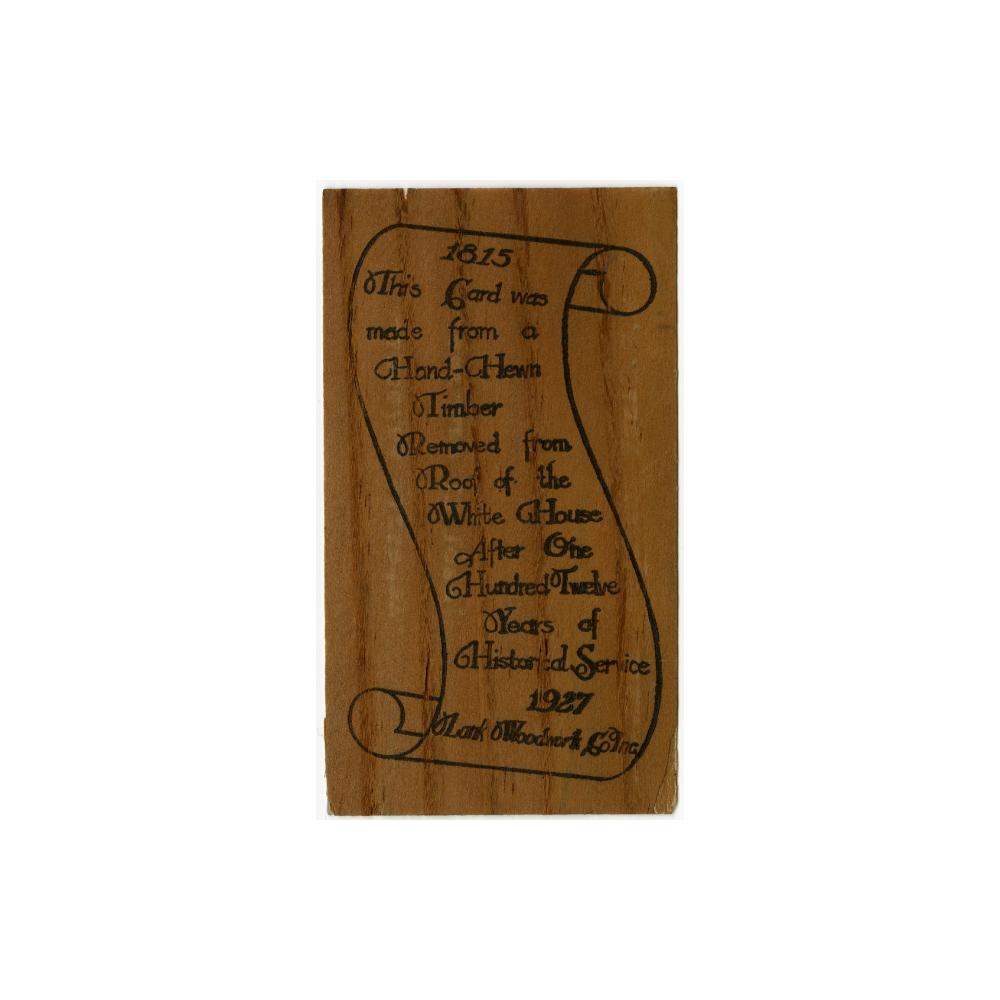 1815
This Card was
made from a
Hand-Hewn
Timber
Removed from
Roof of the
White House
After One
Hundred Twelve
Years of
Historical Service
1927
Lank Woodwork Co Inc.